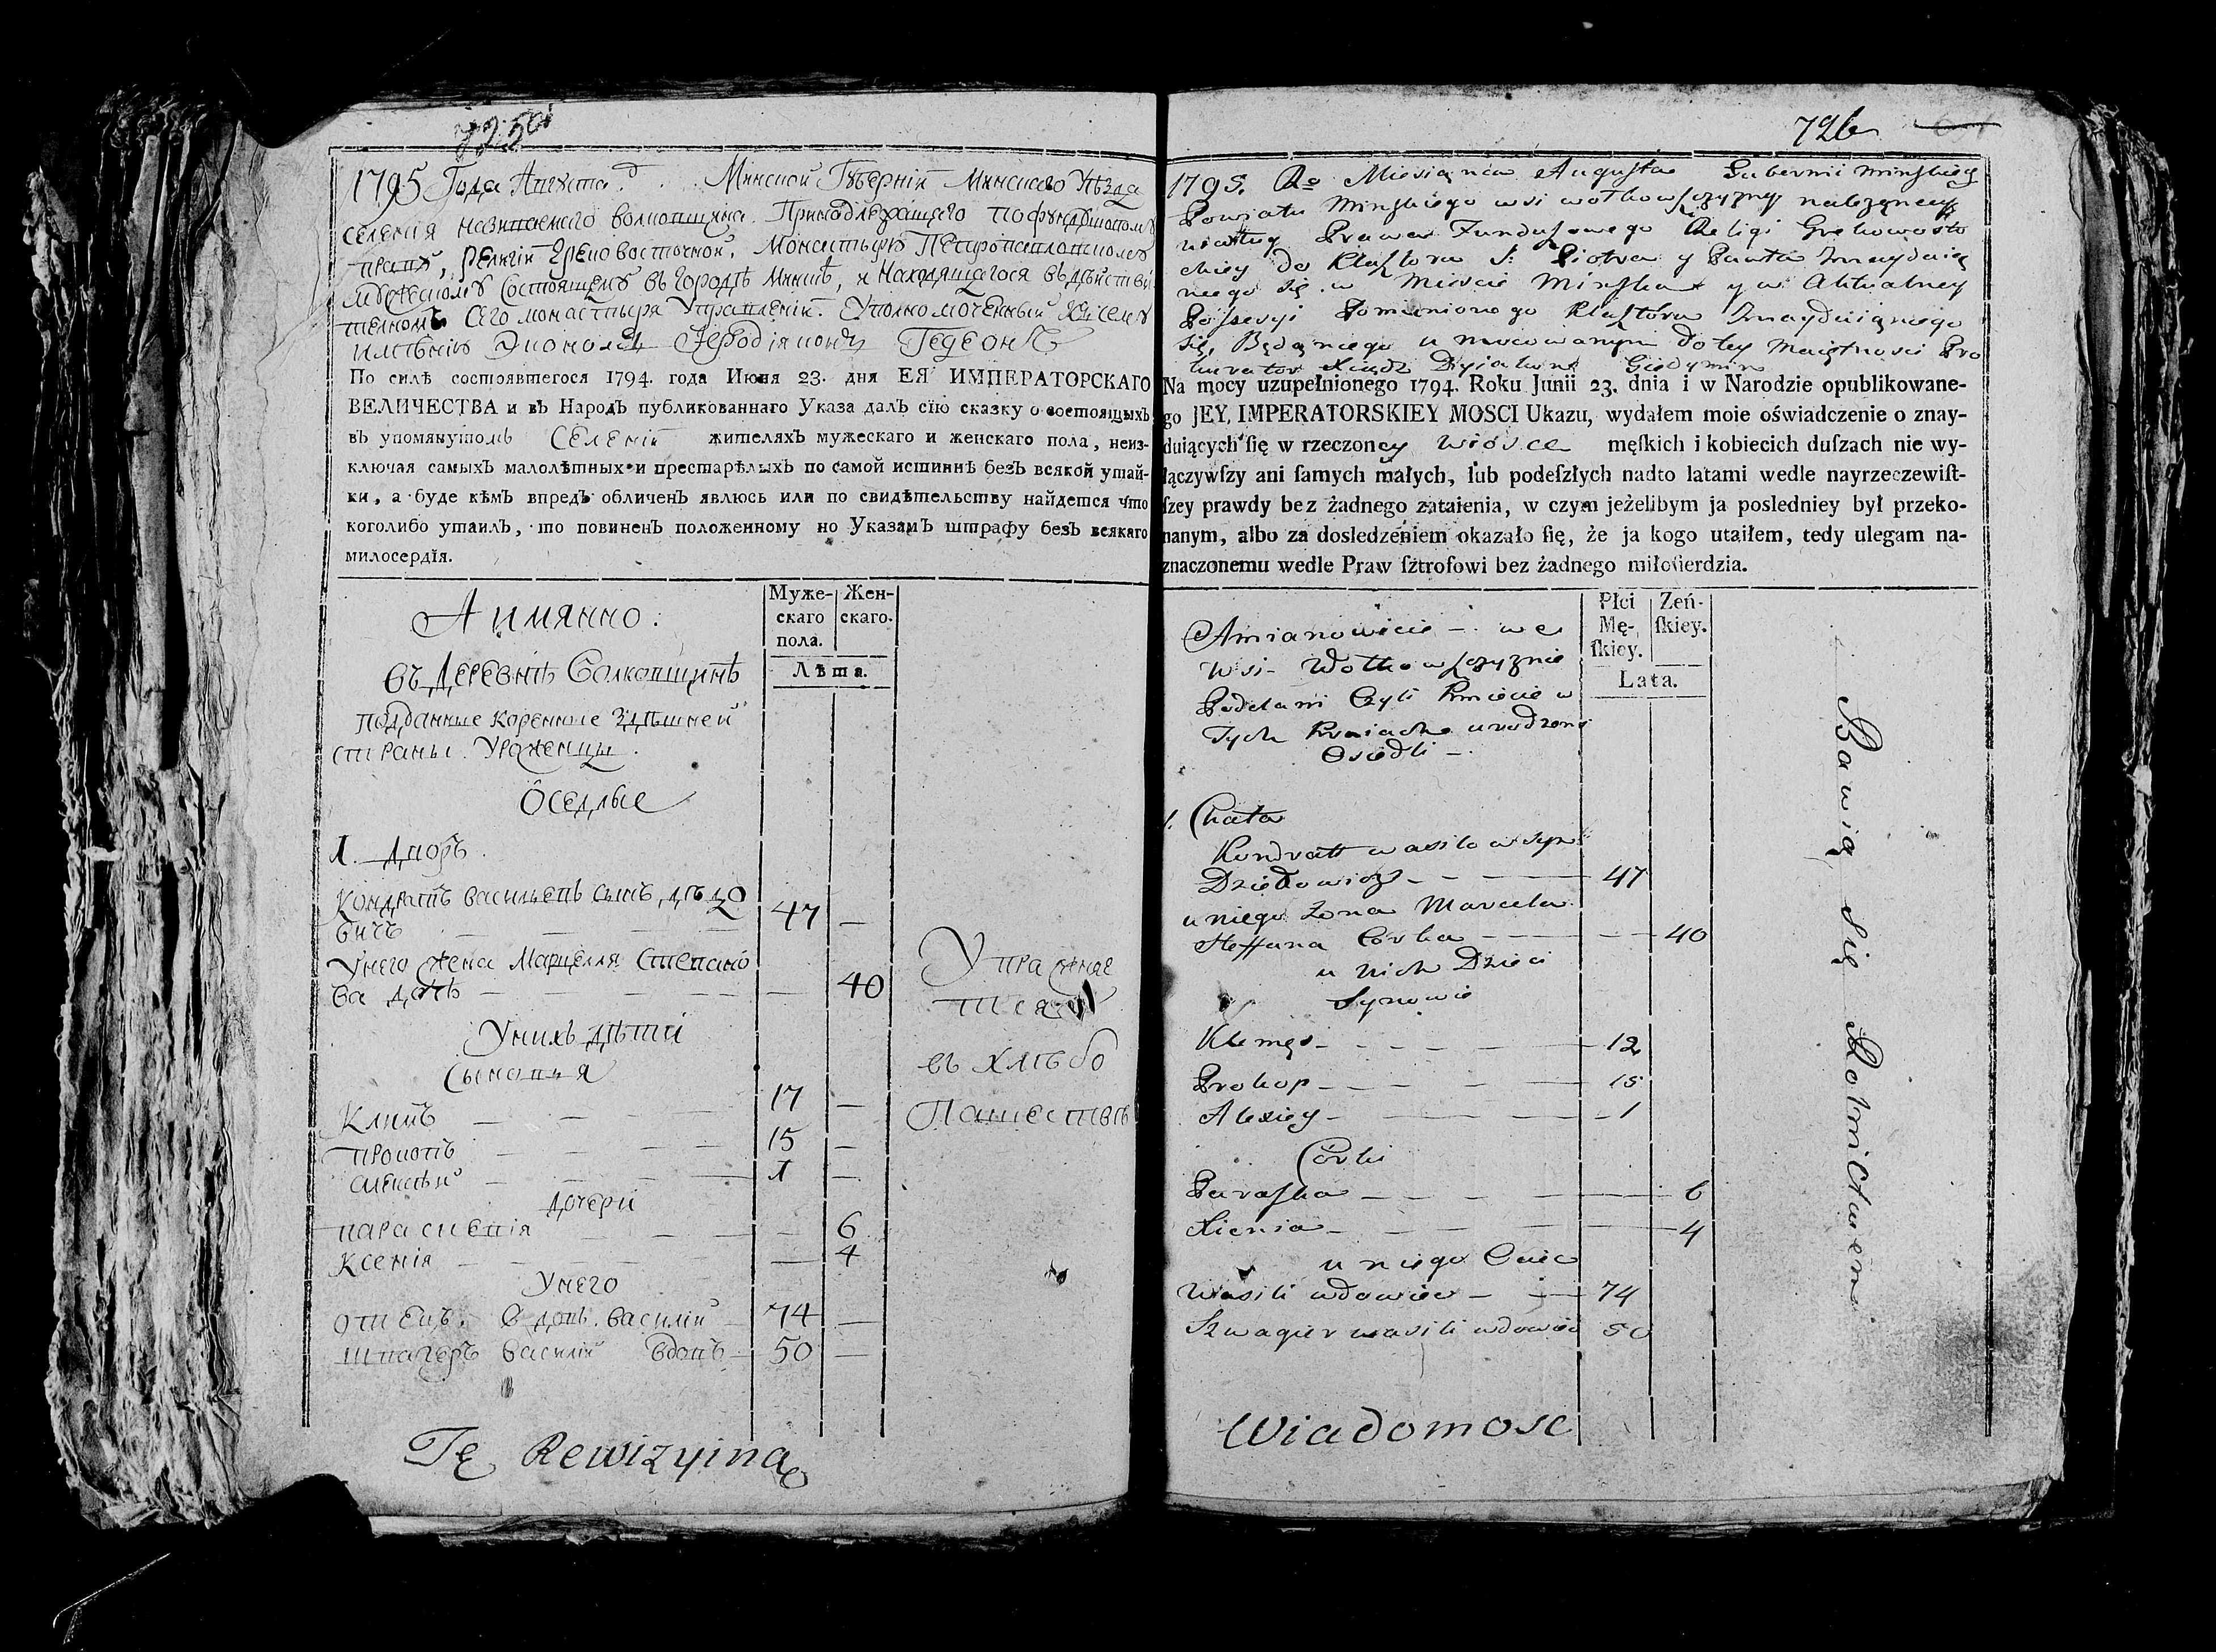 725
1795 Года Августа Д. Минской Губернїи Минскаго Уѣзда
селенїя называемаго волковщина. Принадлежащаго по фундушовому
праву, Релїгїи Греко восточной, Монастырю Петропавловскому
состоящему въ городѣ Минскѣ, и Находящагося въ дѣйстви
тельномъ Сего монастыря Управленїи. Уполномоченный къ сему
имѣнїю Экономъ Їеродїяконъ Гедеонъ
По силѣ состоявшегося 1794. года Июня 23. дня ЕЯ ИМПЕРАТОРСКАГО
ВЕЛИЧЕСТВА и въ Народъ публикованнаго Указа далъ сїю сказку о состоящыхъ
въ упомянутомъ Селенїи жителяхъ мужескаго и женскаго пола, неиз-
ключая самыхъ малолѣтныхъ и престарѣлыхъ по самой истиннѣ безъ всякой утай-
ки, а буде кѣмъ впредъ обличенъ явлюсь или по свидѣтельству найдется что
коголибо утаилъ, то повиненъ положенному по Указамъ штрафу безъ всякаго
милосердїя.
Муже- Жен-
скаго скаго.
пола.
Лѣта.
А имянно:
въ Деревнѣ Волковщинѣ
подданные коренные здѣшней
страны Уроженцы.
Оседлые
1. дворъ.
Кондратъ васильевъ сынъ, дѣдо
вичъ — — — 47 —
Унего жена Марцелля Степано
ва дочь — — — — 40
Унихъ дѣти
Сыновья
Климъ — — — 17 —
прокопъ — — — 15 —
алексѣй — — — 1 —
дочери
параскевїя — — — 6
Ксенїя — — — 4
Унего
отецъ. вдовъ. василїй — 74 —
швагеръ василїй вдовъ — 50 —
Упражняе
тся
въ хлѣбо
Пашествѣ
Tę Rewizyiną
726
1795. Ro Miesiąnca Augusta Gubernii Minskiey
Powiatu Minskiego wsi wołkowszczyzny należącey
według Prawa Funduszowego Religi Grekowosto
chiey do Klasztoru S: Piotra y Pawła Znayduią
cego się w Miescie Minsku y w Aktualney
Possesyi Pomienionego Klasztoru Znayduiącego
się, Będącego umocowanym do tey Maiętnosci Pro
kurator Xiądz Dyiakon Giedymin
Na mocy uzupełnionego 1794. Roku Junii 23. dnia i w Narodzie opublikowane-
go JEY, IMPERATORSKIEY MOSCI Ukazu, wydałem moie oświadczenie o znay-
duiących ſię w rzeczoney wiosce męſkich i kobiecich duſzach nie wy-
łączywſzy ani ſamych małych, lub podeſzłych nadto latami wedle nayrzeczewiſt-
ſzey prawdy bez żadnego zataienia, w czym jeżelibym ja posledniey był przeko-
nanym, albo za dosledzeniem okazało ſię, że ja kogo utaiłem, tedy ulegam na-
znaczonemu wedle Praw ſztrofowi bez żadnego miłoſierdzia.
Płci Zeń-
Mę- ſkiey.
ſkiey.
Lata.
Amianowicie — we
wsi Wołkowszczyznie
Poddani Czyli Kmiecie w
Tych Kraiach urodzone
Osiedli —
1. Chata
Kondratt wasilow syn
Dziedowicz — — — 47
u niego Żona Marcela
Steffana Córka — — — 40
u nich Dzieci
Synowie
Klemęs — — — 12
Prokop — — — 15
Alexiey — — — 1
Córki
Paraszka — — — 6
Xienia — — — 4
u niego Ociec
Wasili wdowiec — — 74
Szwagier wasili wdowiec 50
Bawią się Rolnictwem
Wiadomosc